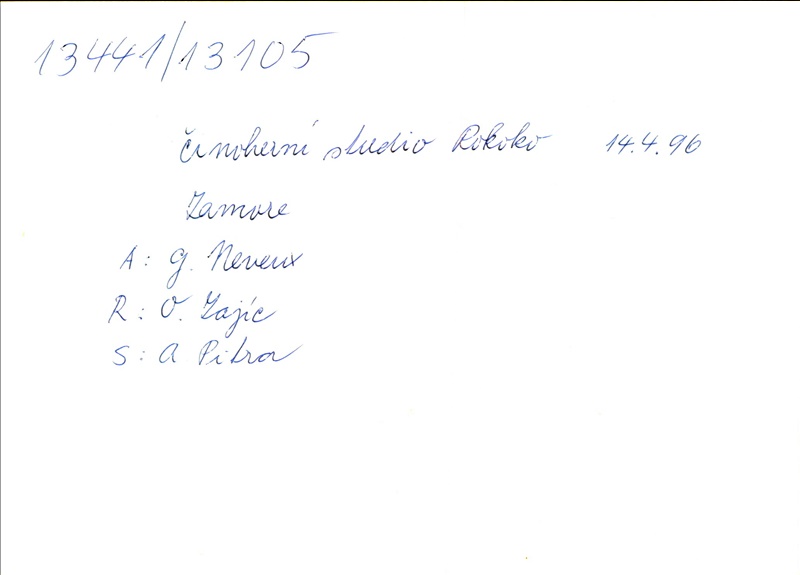 13441/13105
Činoherní studio Rokoko 14.4.96
Zamore
A: G. Neveux
R: O. Zajíc
S: A Pitra